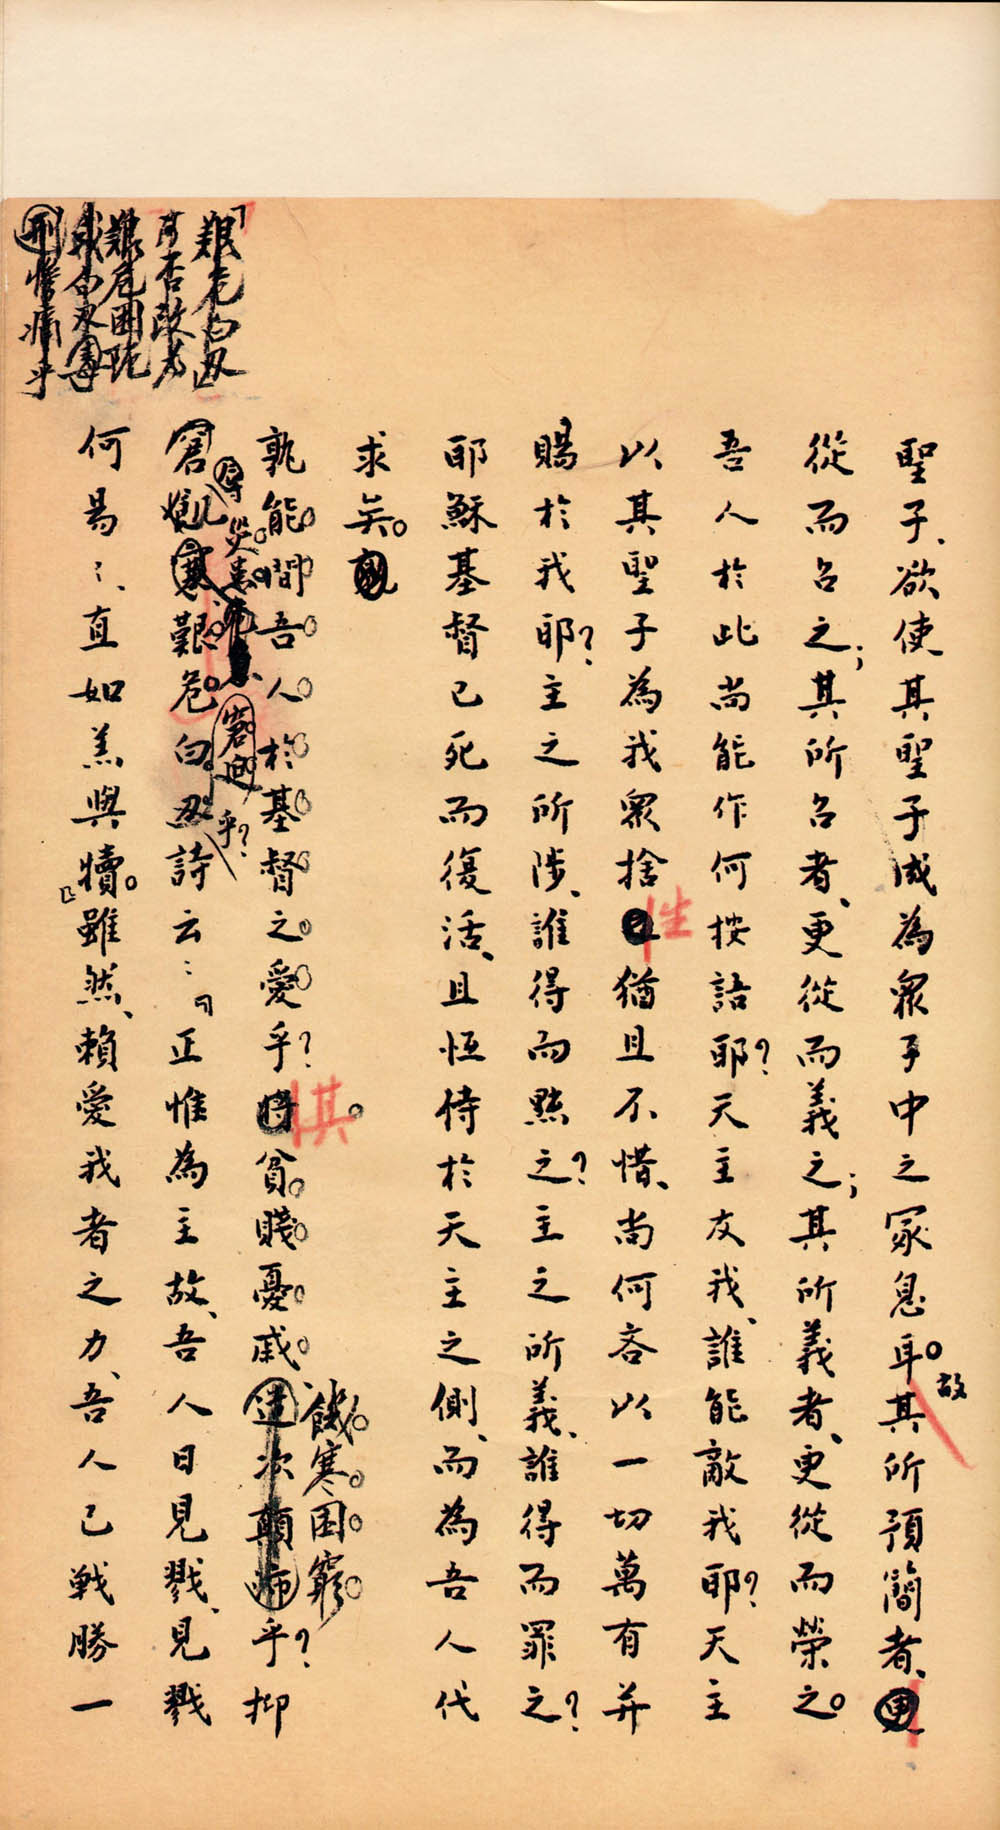 聖子、欲使其聖子成為眾子中之冢息耳。故其所預簡者、更
從而召之；其所召者、更從而義之；其所義者、更從而榮之。
吾人於此尚能作何按語耶？天主友我、誰能敵我耶？天主
以其聖子為我眾捨生猶且不惜、尚何吝以一切萬有并
賜於我耶？主之所陟、誰得而黜之？主之所義、誰得而罪之？
耶穌基督已死而復活、且恒侍於天主之側、而為吾人代
求矣。
孰能間吾人於基督之愛乎？其貧賤憂戚
饑寒困窮
乎？抑
災害
窘迫
乎？
艱危白刃詩云：『正惟為主故、吾人日見戮、見戮
何易易、直如羔與犢。』雖然、賴愛我者之力、吾人已戰勝一
「艱危白刃」
可否改為
艱危困阨
刑慘痛乎